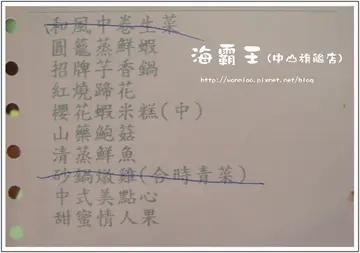 和風中卷生菜
圓籠蒸鮮蝦
招牌芋香鍋
紅燒蹄花
櫻花蝦米糕(中)
山藥鮑菇
清蒸鮮魚
砂鍋燉雞(合時青菜)
中式美點心
甜蜜情人果
海霸王(中山旗艦店)
http://wanmiao.pixnet.net/blog